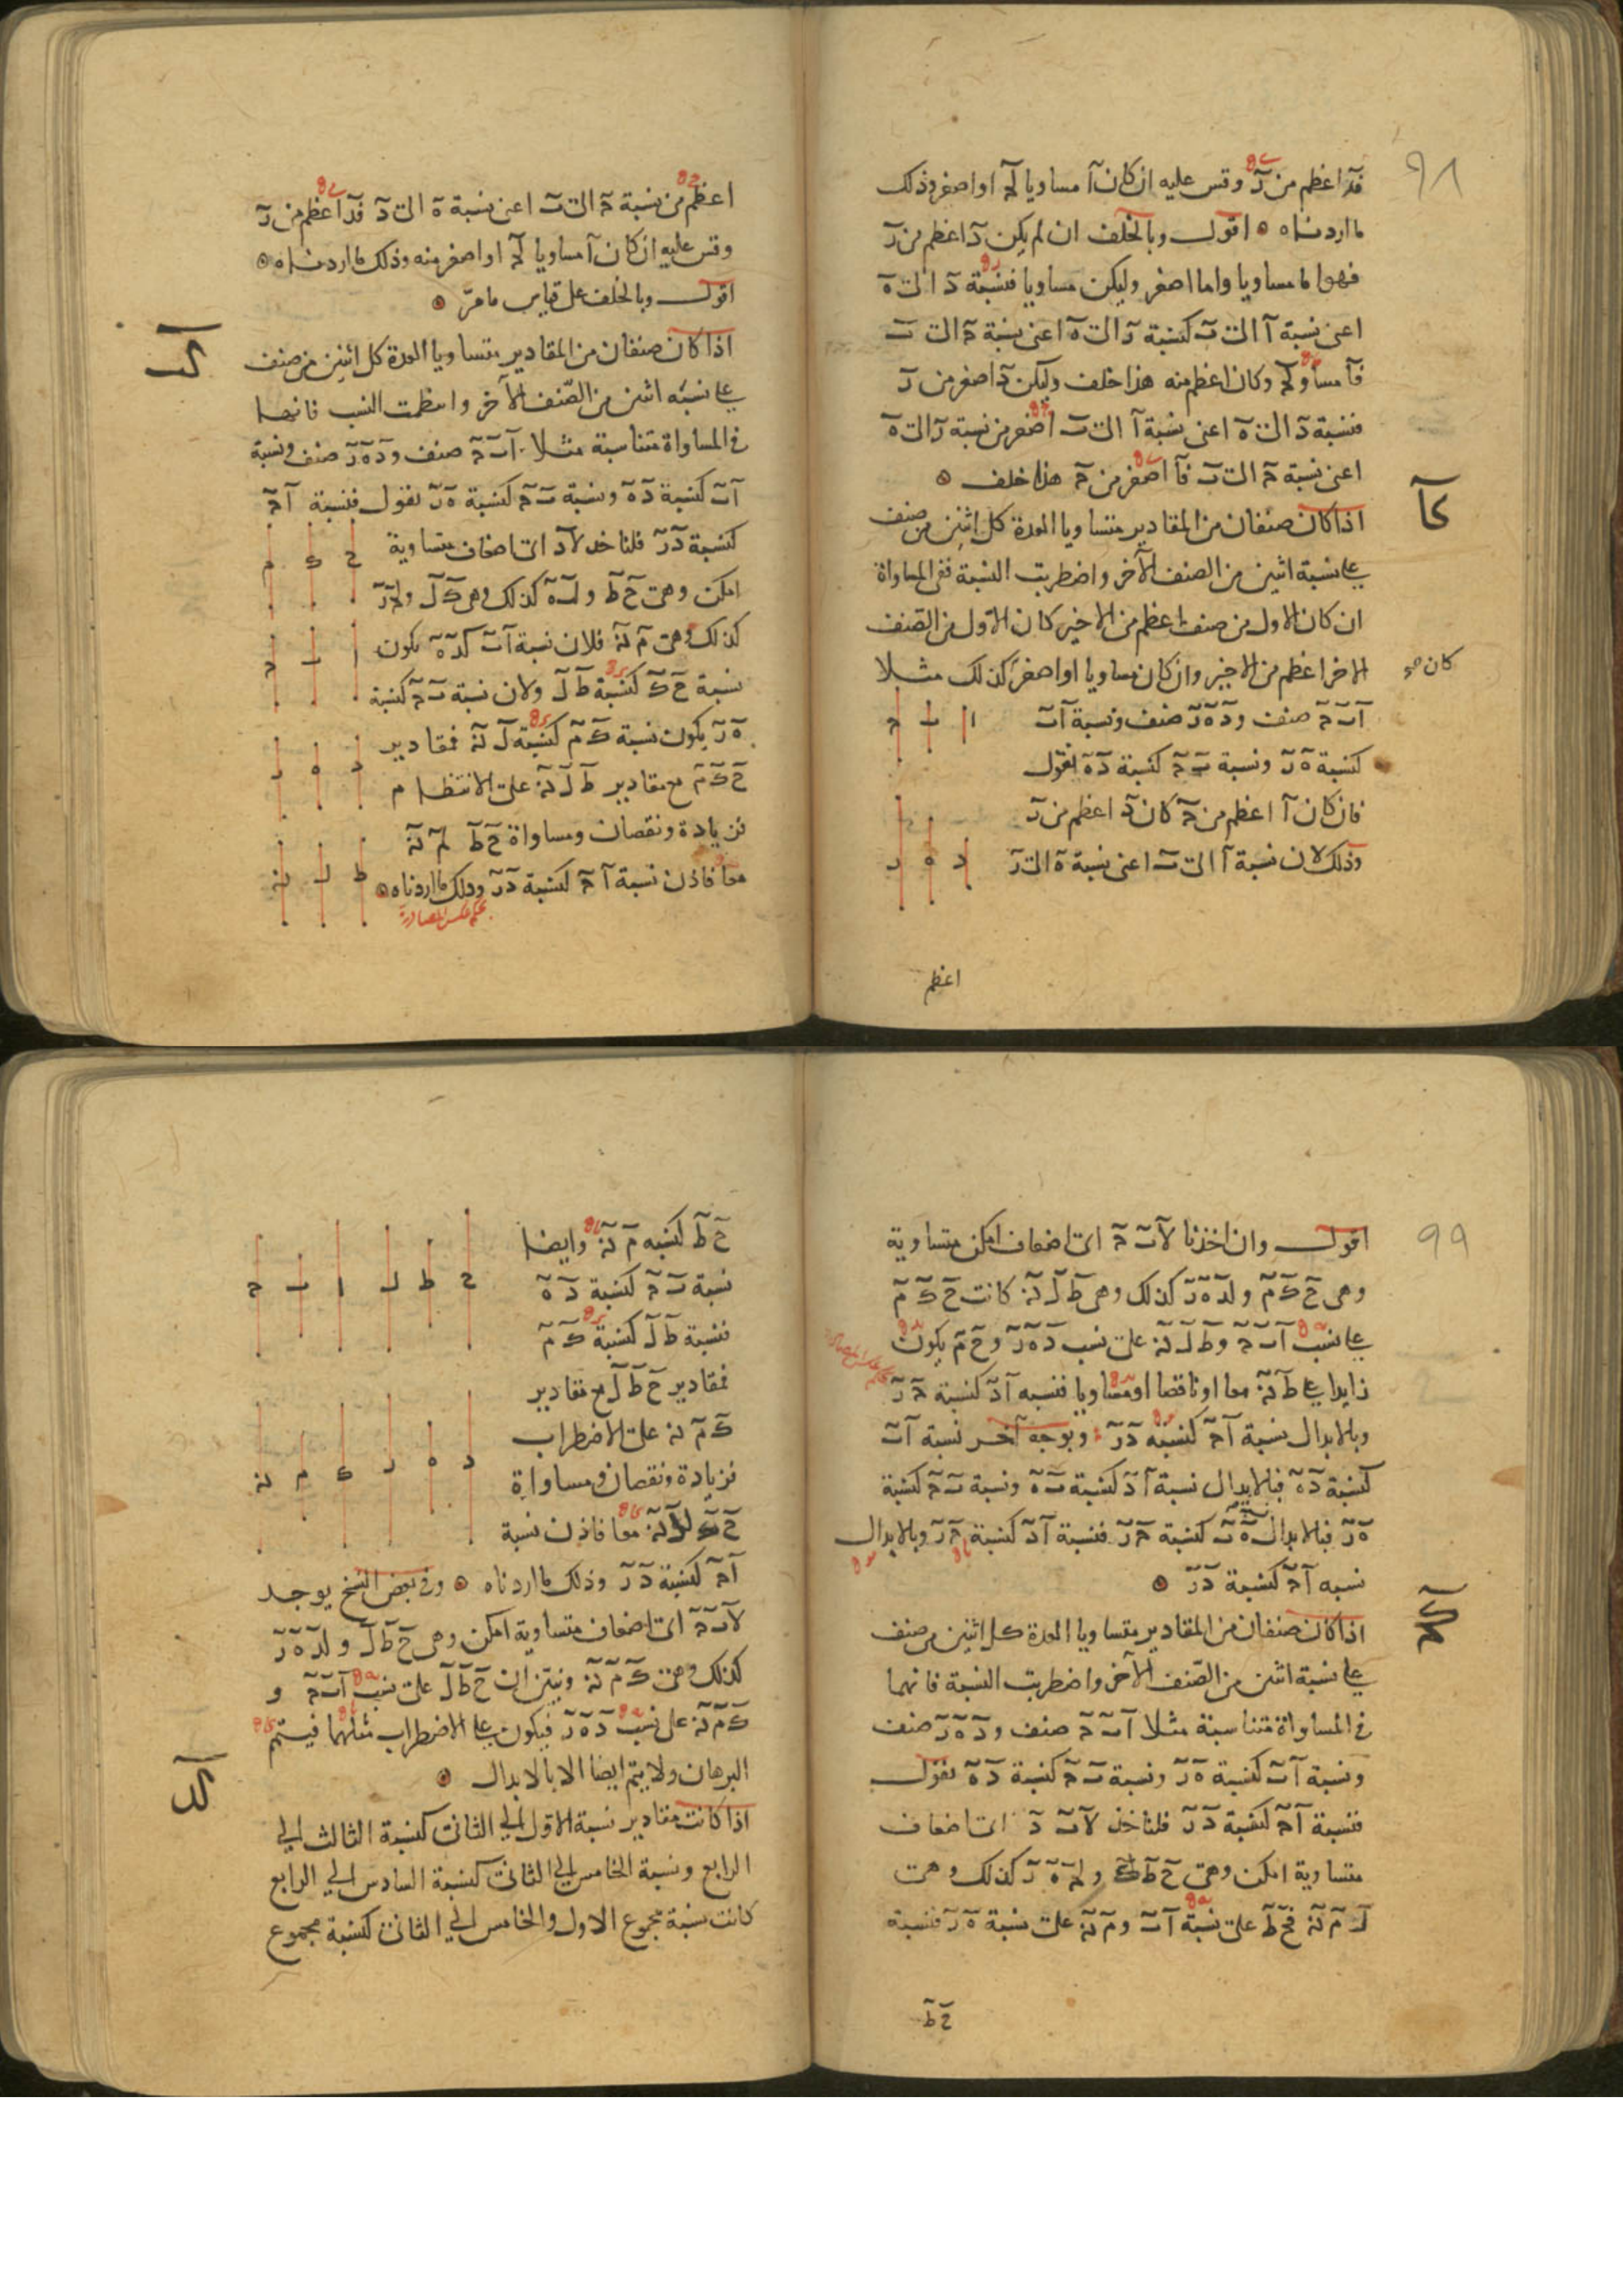 ٩٨
فد اعظم من ر وقس عليه ان كان ا مساويا لج او اصغر وذلك
ما اردناه اقول وبالخلف ان لم يكن د اعظم من ر
فهو اما مساويا واما اصغر وليكن مساويا فنسبة د الى ه
اعنى نسبة ا الى ب كنسبة ر الى ه اعنى نسبة ج الى ب
فا مساو لج وكان اعظم منه هذا خلف وليكن د اصغر من ر
فنسبة د الى ه اعنى نسبة ا الى ب اصغر من نسبة ر الى ه
اعنى نسبة ج الى ب فا اصغر من ج هذا خلف
كا
اذا كان صنفان من المقادير متساويا العدة كل اثنين من صنف
على نسبة اثنين من الصنف الآخر واضطربت النسبة ففى المساواة
ان كان الاول من صنف اعظم من الاخير كان الاول من الصنف
الاخر اعظم من الاخير وان كان مساويا او اصغر كذلك مثلا
كان
ا ب ج صنف و د ه ر صنف ونسبة ا ب
ا ب ج
كنسبة ه ر ونسبة ب ج كنسبة د ه نقول
فان كان ا اعظم من ج كان د اعظم من ر
وذلك لان نسبة ا الى ب اعنى نسبة ه الى ر
د ه ر
اعظم
اعظم من نسبة ج الى ب اعنى نسبة ه الى د فد اعظم من ر
وقس عليه ان كان ا مساويا لج او اصغر منه وذلك ما اردناه
اقول وبالخلف على قياس ما مرّ
كب
اذا كان صنفان من المقادير متساويا العدة كل اثنين من صنف
على نسبة اثنين من الصّنف الآخر وانتظمت النسب فانهما
فى المساواة متناسبة مثلا ا ب ج صنف و د ه ر صنف ونسبة
ا ب كنسبة د ه ونسبة ب ج كنسبة ه ر نقول فنسبة ا ج
كنسبة د ر فلناخذ لا د اى اضعاف متساوية
ح ك م
امكن وهى ح ط ولب ه كذلك وهى ك ل ولج ر
كذلك وهى م ن فلان نسبة ا ب كد ه يكون
ا ب ج
نسبة ح ك كنسبة ط ل ولان نسبة ب ج كنسبة
ه ر يكون نسبة ك م كنسبة ل ن فمقادير
د ه ر
ح ك م مع مقادير ط ل ن على الانتظام
فزيادة ونقصان ومساواة ح ط لم ن
معا فاذن نسبة ا ج كنسبة د ر وذلك ما اردناه
ط ل ن
بحكم عكس المصادرة
٩٩
اقول وان اخذنا لا ب ج اى اضعاف امكن متساوية
وهى ح ك م ولد ه ر كذلك وهى ط ل ن كانت ح ك م
على نسب ا ب ج و ط ل ن على نسب د ه ر و ح م يكون
زايدا على ط ن معا او ناقصا او مساويا فنسبه ا د كنسبة ج ر
وبالابدال نسبة ا ج كنسبه د ر وبوجه آخر نسبة ا ب
كنسبة د ه فبالابدال نسبة ا د كنسبة ب ه ونسبة ب ج كنسبة
ه ر فبالابدال ب ه كنسبة ج ر فنسبة ا د كنسبة ج ر وبالابدال
نسبه ا ج كنسبة د ر
كج
اذا كان صنفان من المقادير متساويا العدة كل اثنين من صنف
على نسبة اثنين من الصّنف الآخر واضطربت النسبة فانهما
فى المساواة متناسبة مثلا ا ب ج صنف و د ه ر صنف
ونسبة ا ب كنسبة ه ر ونسبة ب ج كنسبة د ه نقول
فنسبة ا ج كنسبة د ر فلناخذ لا ب د اى اضعاف
متساوية امكن وهى ح ط ك ولج ه ر كذلك وهى
ل م ن فح ط على نسبة ا ب و م ن على نسبة ه ر فنسبة
ح ط
ح ط كنسبه م ن وايضا
نسبة ب ج كنسبة د ه
ح ط ل ا ب ج
فنسبة ط ل كنسبة ك م
فمقادير ح ط ل مع مقادير
ك م ن على الاضطراب
فزيادة ونقصان ومساواة
د ه ر ك م ن
ح ك ل ن معا فاذن نسبة
ا ج كنسبة د ر وذلك ما اردناه وفى بعض النسخ يوجد
لا ب ج اى اضعاف متساوية امكن وهى ح ط ل ولد ه ر
كذلك وهى ك م ن ونبيّن ان ح ط ل على نسب ا ب ج و
ك م ن على نسب د ه ر فيكون على الاضطراب مثلهما فيتم
البرهان ولا يتم ايضا الا بالابدال
كد
اذا كانت مقادير نسبة الاول الى الثانى كنسبة الثالث الى
الرابع ونسبة الخامس الى الثانى كنسبة السادس الى الرابع
كانت نسبة مجموع الاول والخامس الى الثانى كنسبة مجموع